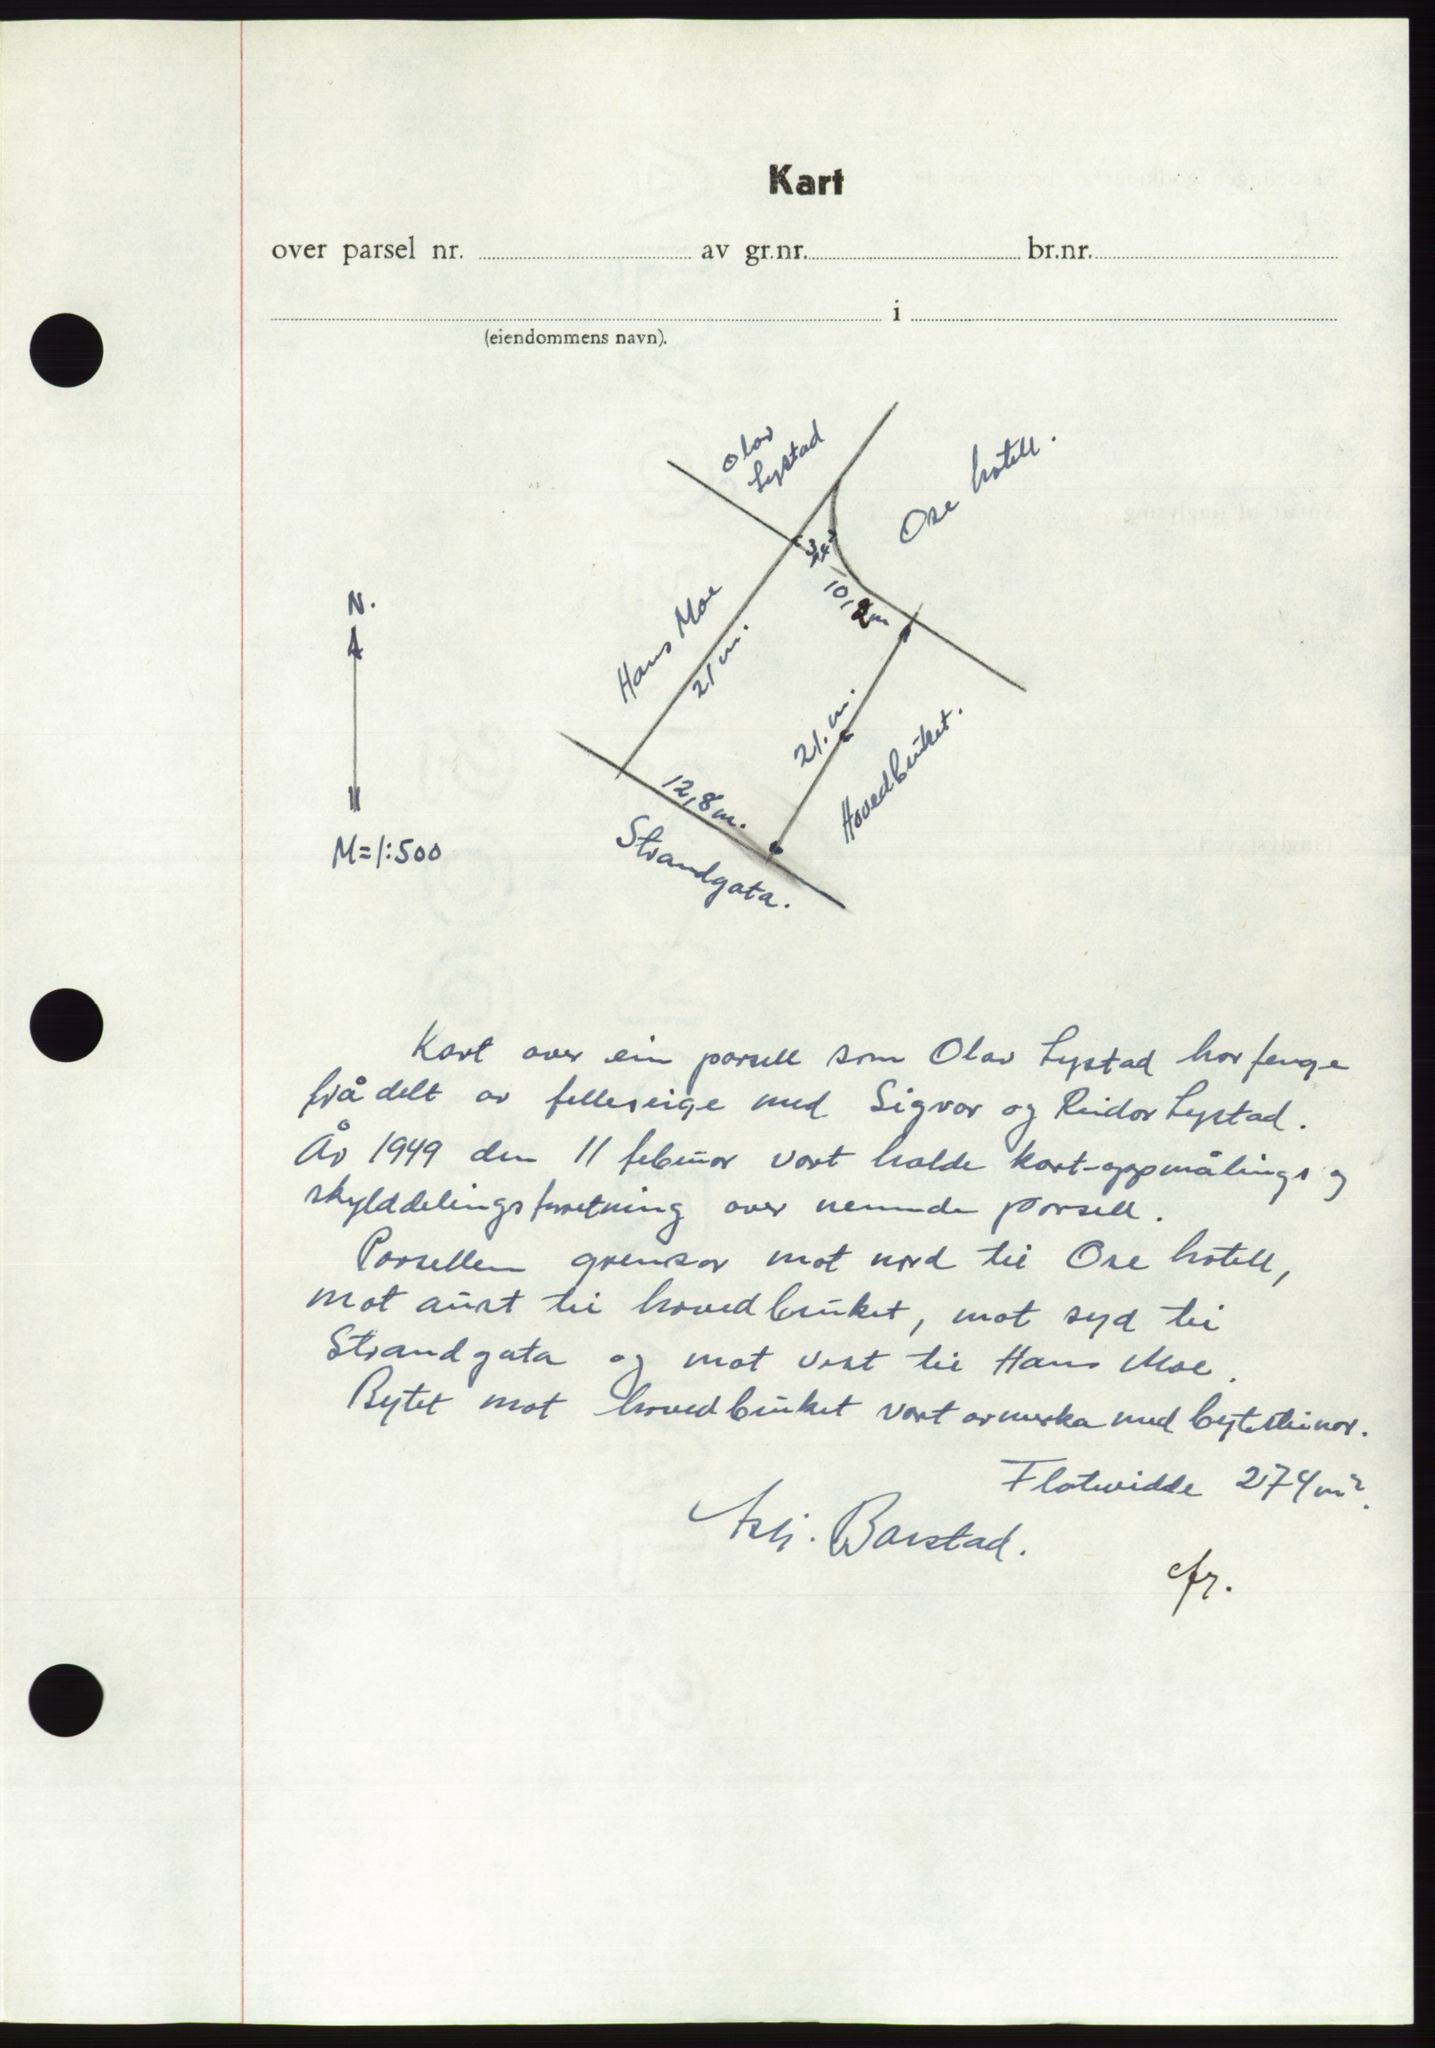 Kart
over parsel nr. av gr.nr. br.nr.
i
(eiendommens navn).
Olav
Lystad
Ose hotell.
10,2m
Hans Moe
21 m.
21. m.
Hovedbruket.
12,8 m.
Strandgata.
N.
M=1:500
Kart over ein parsell som Olav Lystad har fenge
frådelt av felleseige med Sigvar og Reidar Lystad.
År 1949 den 11 februar vart halde kart-oppmålings og
skylddelingsforretning over nemnde parsell.
Parsellen grensar mot nord til Ose hotell,
mot aust til hovedbruket, mot syd til
Strandgata og mot vest til Hans Moe.
Bytet mot hovedbruket vart avmerka med bytesteinar.
Flatevidde 274 m².
Barstad.